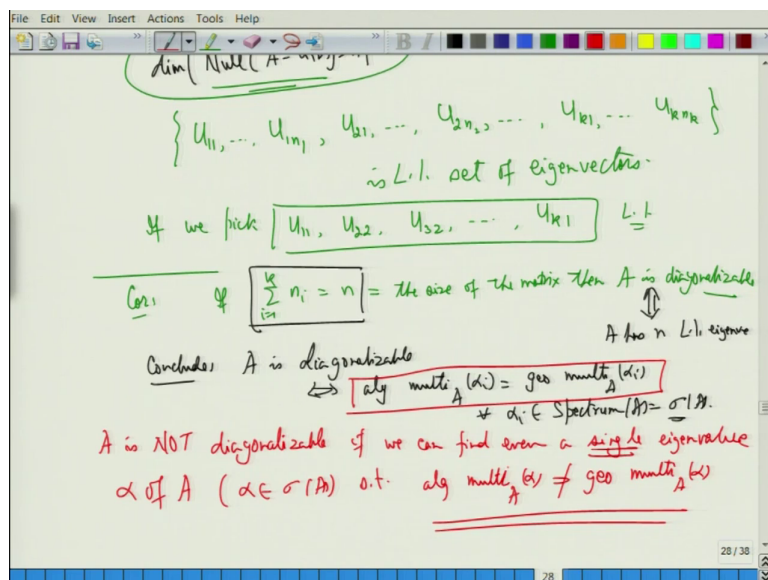 File Edit View Insert Actions Tools Help
dim( Null( A-
{ U11, ..., U1n1, U21, ..., U2n2, ..., Uk1, ... Uknk }
is L.I. set of eigenvectors.
If we pick U11, U22, U32, ..., Uk1 L.I.
Cor: If ∑_{i=1}^{k} ni = n = the size of the matrix then A is diagonalizable
⇕
A has n L.I. eigenve
Conclude: A is diagonalizable
⇔ alg multi_A (αi) = geo multi_A (αi)
∀ αi ∈ Spectrum(A) = σ(A).
A is NOT diagonalizable if we can find even a single eigenvalue
α of A ( α ∈ σ(A) s.t. alg multi_A (α) ≠ geo multi_A (α)
28 / 38
28